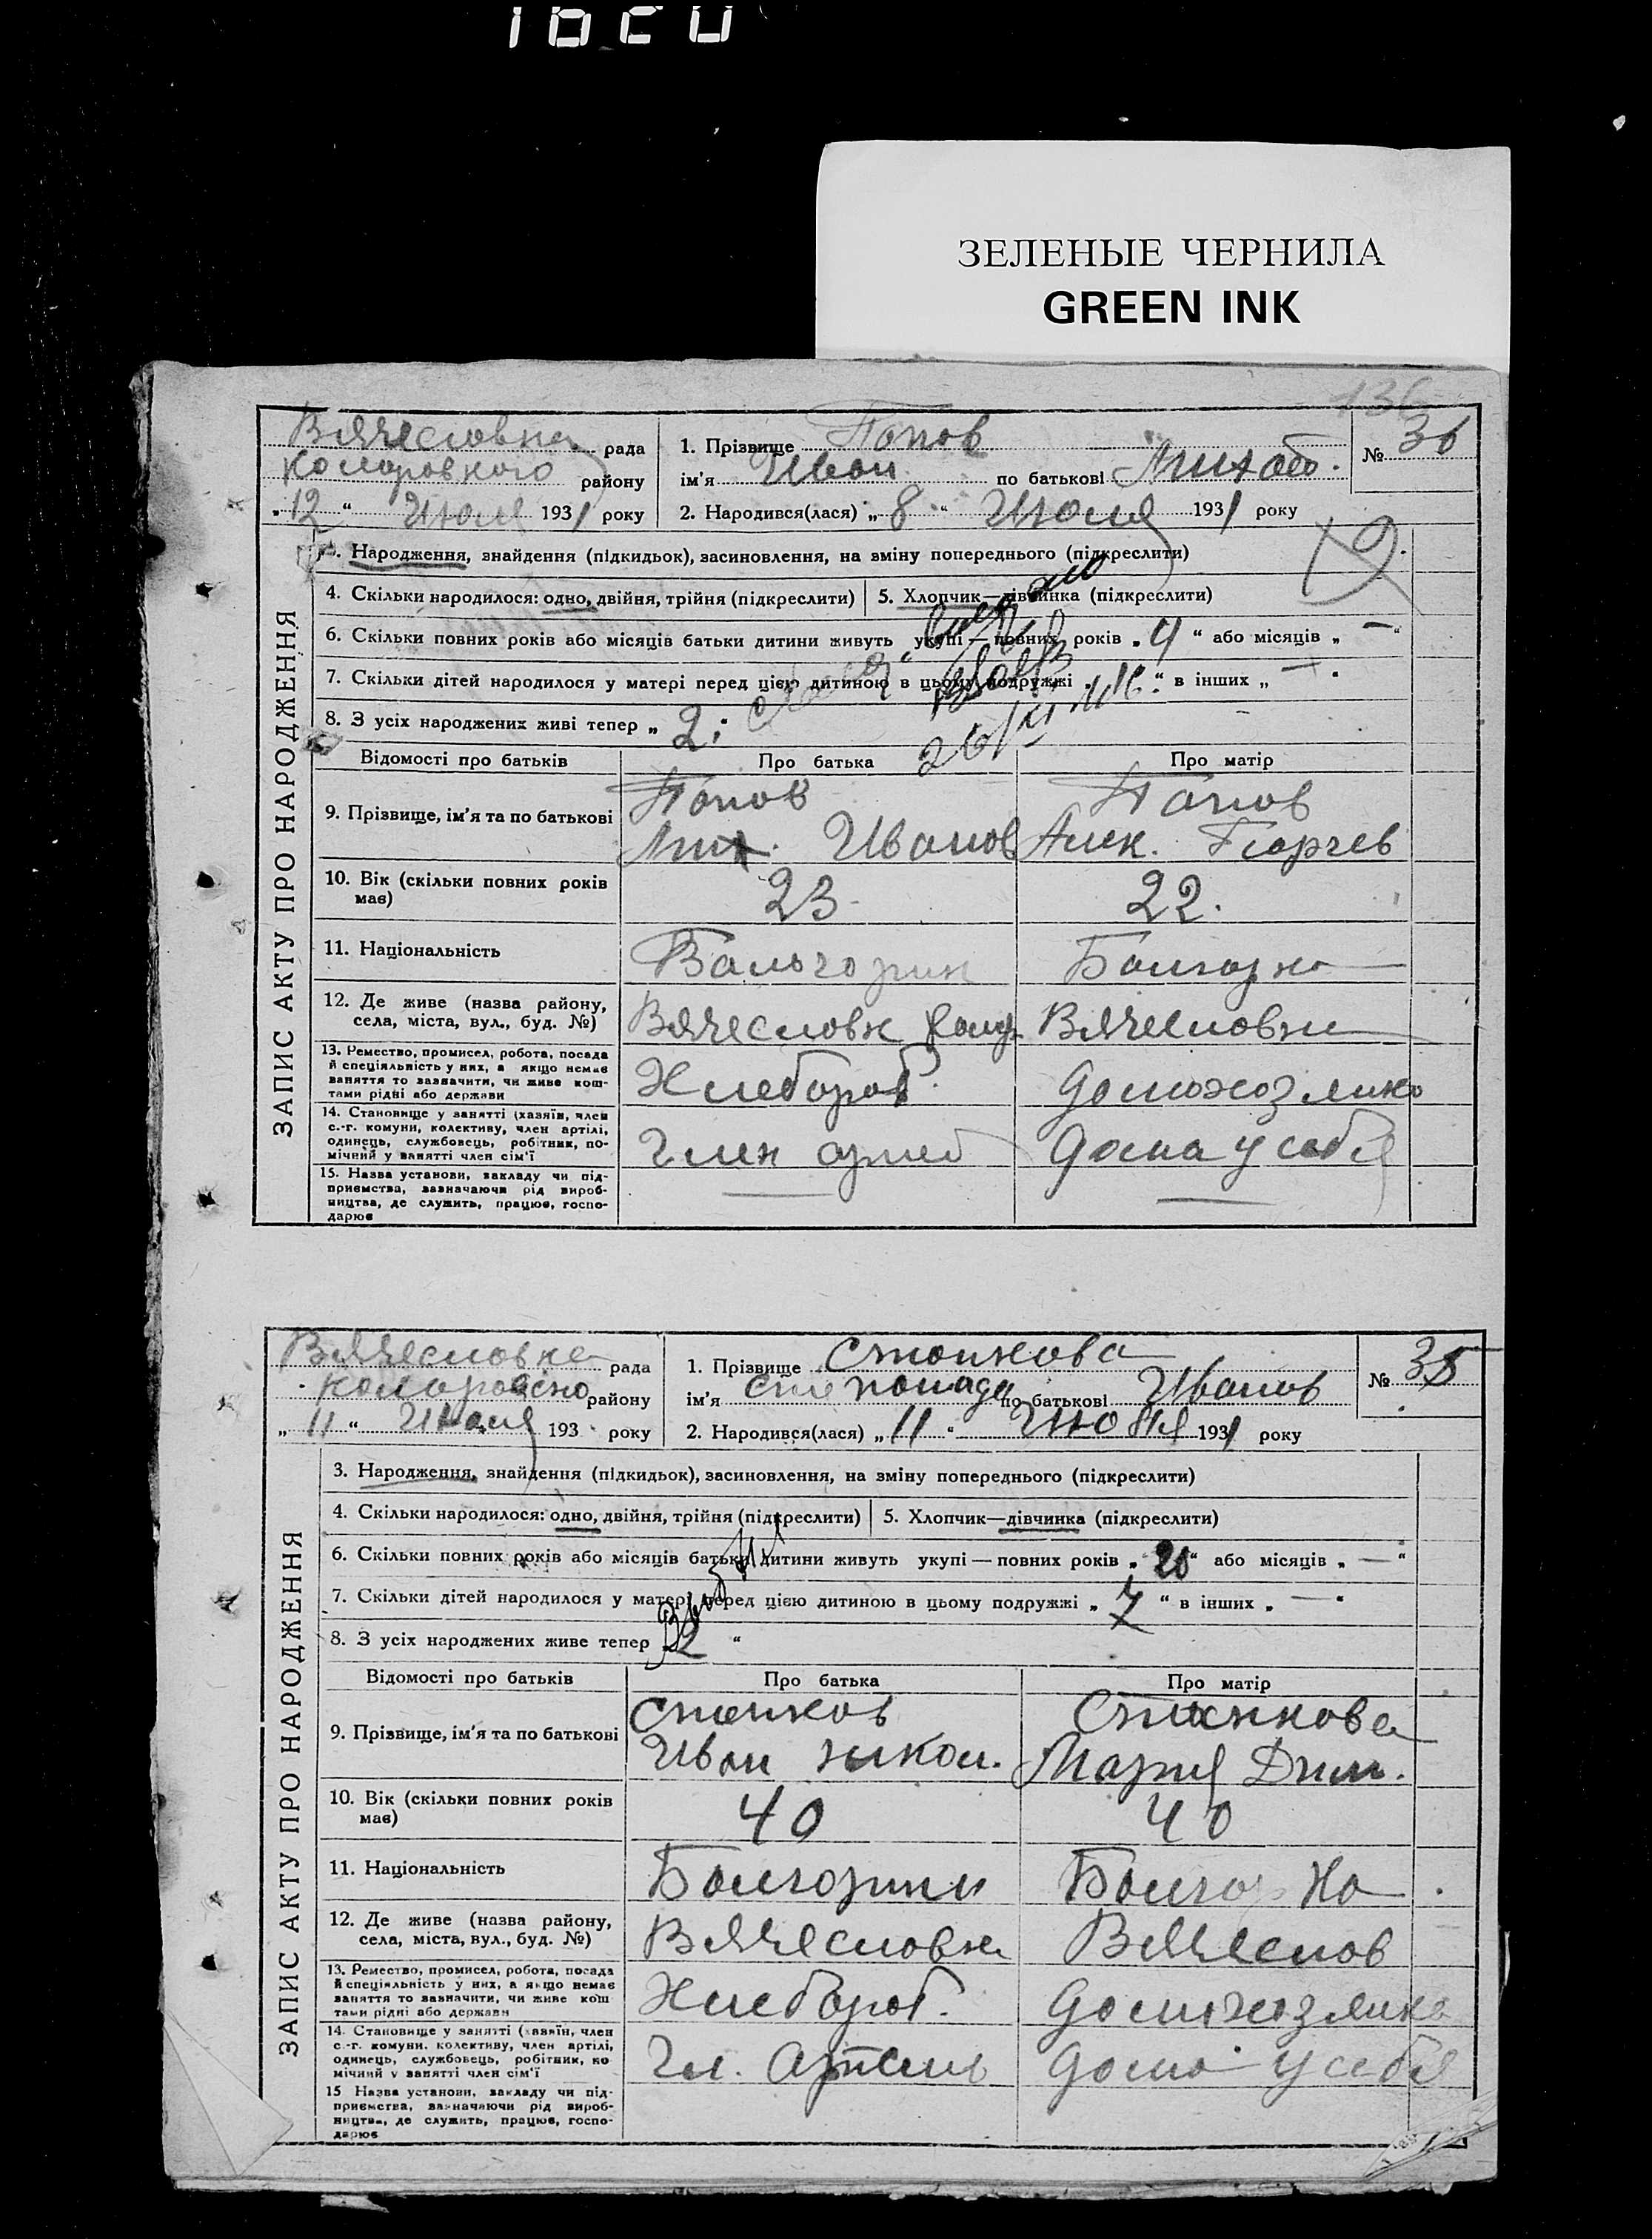 1620
ЗЕЛЕНЫЕ ЧЕРНИЛА
GREEN INK
136
ЗАПИС АКТУ ПРО НАРОДЖЕННЯ
Вячесловка рада
Коларовкого району
„12“ Июля 1931 року
1. Прізвище Попов
ім'я Иван по батькові
2. Народився(лася) „8“ Июля 1931 року
№ 36
3. Народження, знайдення (підкидьок), засиновлення, на зміну попереднього (підкреслити)
4. Скільки народилося: одно, двійня, трійня (підкреслити) 5. Хлопчик—дівчинка (підкреслити)
6. Скільки повних років або місяців батьки дитини живуть укупі — повних років „4“ або місяців „—“
7. Скільки дітей народилося у матері перед цією дитиною в цьому подружжі „ “ в інших „—“
8. З усіх народжених живі тепер „2
Відомості про батьків Про батька Про матір
9. Прізвище, ім'я та по батькові Попов Попов
Иванов Алек. Георгев
10. Вік (скільки повних років має) 23 22.
11. Національність Бальгорин Болгарка
12. Де живе (назва району, Вячесловк Вячесловк
села, міста, вул., буд. №)
13. Ремество, промисел, робота, посада Хлебороб Домохозяйка
й спеціяльність у них, а якщо немає
заняття то зазначити, чи живе кош-
тами рідні або держави
14. Становище у занятті (хазяїн, член Член артел Дома у себя
с.-г. комуни, колективу, член артілі,
одинець, службовець, робітник, по-
мічний у занятті член сім'ї
15. Назва установи, закладу чи під-
приємства, зазначаючи рід вироб-
ництва, де служить, працює, госпо-
дарює
ЗАПИС АКТУ ПРО НАРОДЖЕННЯ
Вячесловка рада
району
„11“ Июля 193 року
1. Прізвище Стоянкова
ім'я по батькові Иванов
2. Народився(лася) „11“ Июля 1931 року
№ 35
3. Народження, знайдення (підкидьок), засиновлення, на зміну попереднього (підкреслити)
4. Скільки народилося: одно, двійня, трійня (підкреслити) 5. Хлопчик—дівчинка (підкреслити)
6. Скільки повних років або місяців батьки дитини живуть укупі — повних років „20“ або місяців „—“
7. Скільки дітей народилося у матері перед цією дитиною в цьому подружжі „7“ в інших „—“
8. З усіх народжених живе тепер „2“
Відомості про батьків Про батька Про матір
9. Прізвище, ім'я та по батькові Стоянков Стоянкова
Иван Никол. Мария Дим.
10. Вік (скільки повних років має) 40 40
11. Національність Болгорин Болгарка
12. Де живе (назва району, Вячесловка Вячеслов
села, міста, вул., буд. №)
13. Ремество, промисел, робота, посада Хлебороб. Домохозяйка
й спеціяльність у них, а якщо немає
заняття то зазначити, чи живе кош-
тами рідні або держави
14. Становище у занятті (хазяїн, член Чл. Артель Дома у себя
с.-г. комуни, колективу, член артілі,
одинець, службовець, робітник, по-
мічний у занятті член сім'ї
15 Назва установи, закладу чи під-
приємства, зазначаючи рід вироб-
ництва, де служить, працює, госпо-
дарює